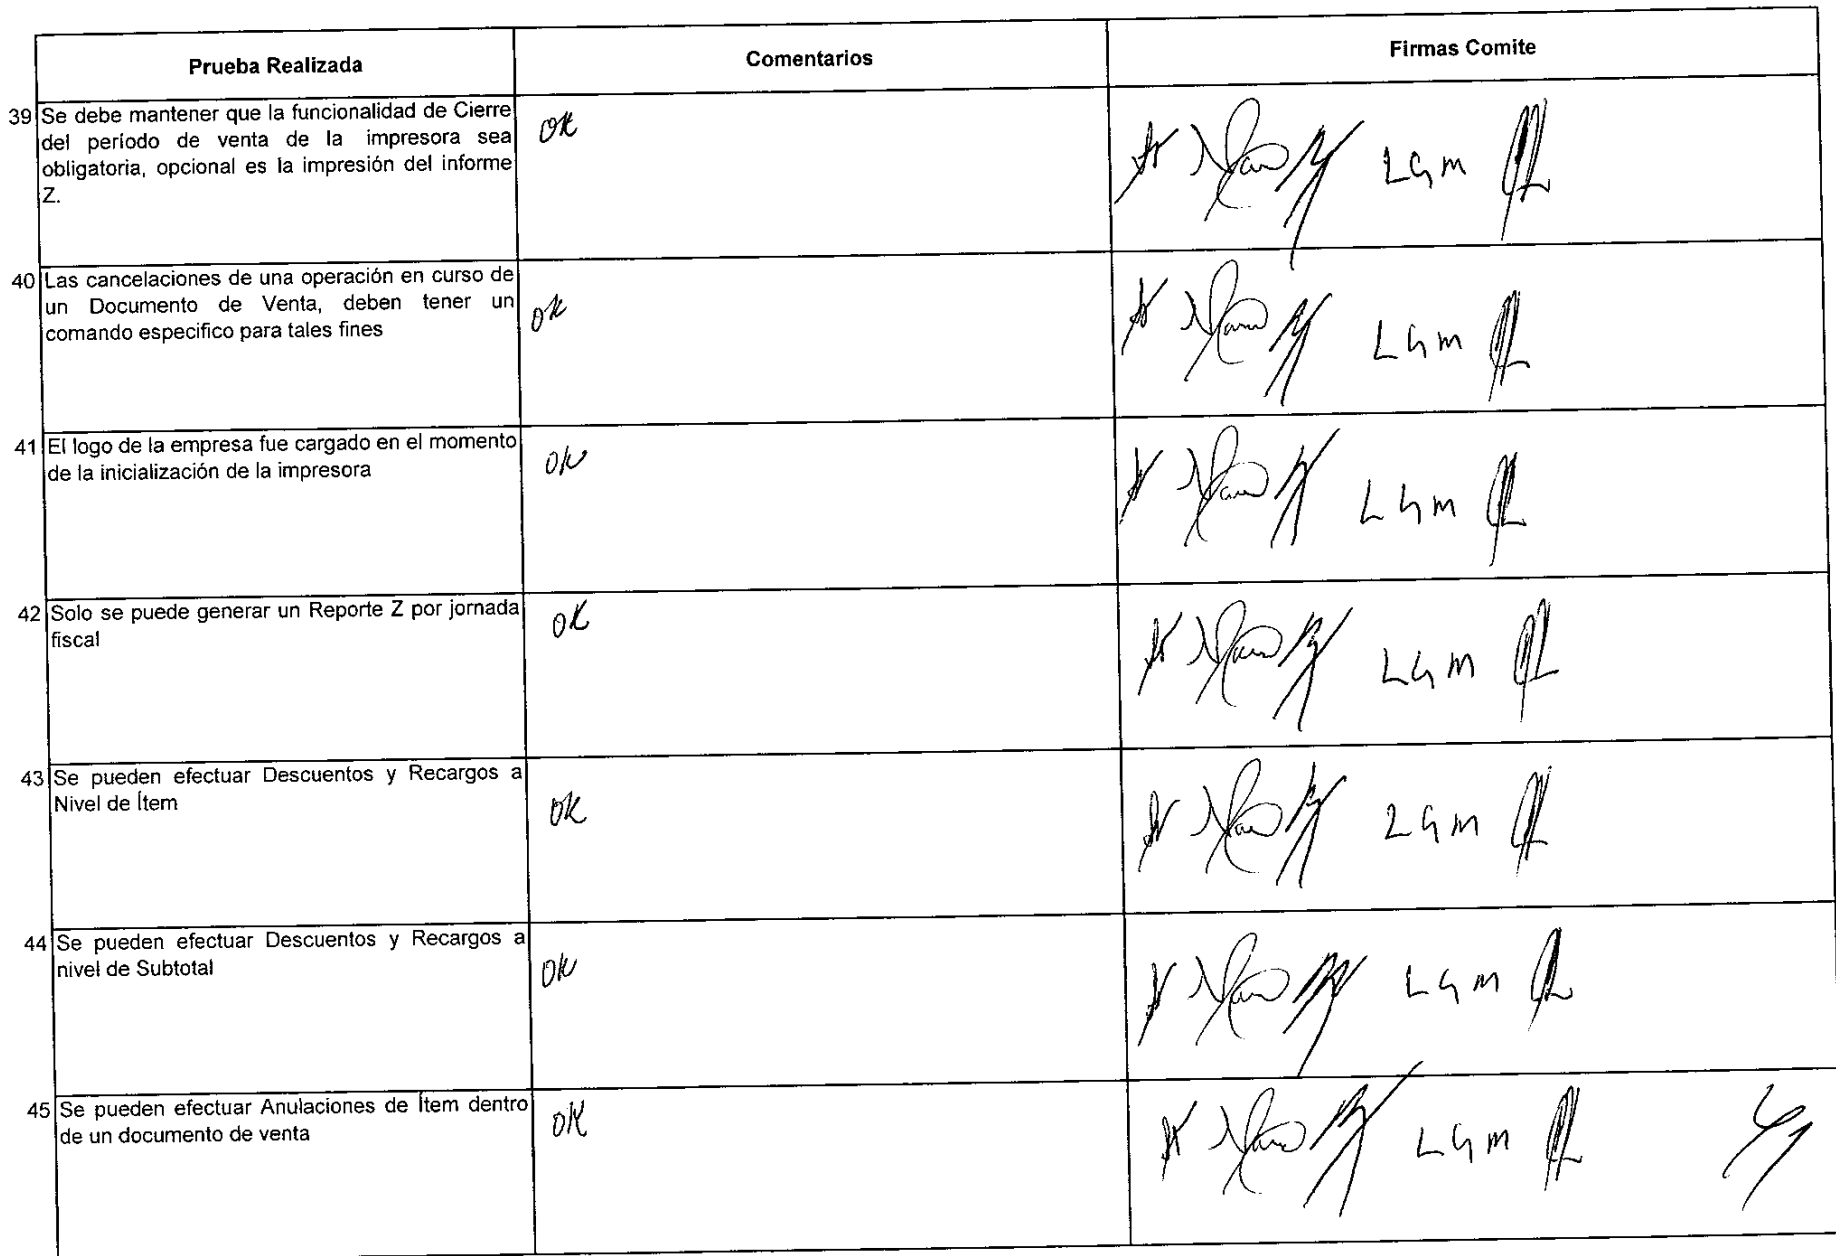 Prueba Realizada
Comentarios
Firmas Comite
39 Se debe mantener que la funcionalidad de Cierre
del período de venta de la impresora sea
obligatoria, opcional es la impresión del informe
Z.
OK
LGM
40 Las cancelaciones de una operación en curso de
un Documento de Venta, deben tener un
comando especifico para tales fines
OK
LGM
41 El logo de la empresa fue cargado en el momento
de la inicialización de la impresora
OK
LGM
42 Solo se puede generar un Reporte Z por jornada
fiscal
OK
LGM
43 Se pueden efectuar Descuentos y Recargos a
Nivel de Ítem
OK
LGM
44 Se pueden efectuar Descuentos y Recargos a
nivel de Subtotal
OK
LGM
45 Se pueden efectuar Anulaciones de Ítem dentro
de un documento de venta
OK
LGM